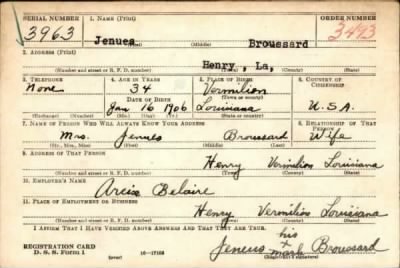 SERIAL NUMBER 1. NAME (Print) ORDER NUMBER
3963 Jenues Broussard 3493
(First) (Middle) (Last)
2. ADDRESS (Print)
Henry, La,
(Number and street or R. F. D. number) (Town) (County) (State)
3. TELEPHONE 4. AGE IN YEARS 5. PLACE OF BIRTH 6. COUNTRY OF CITIZENSHIP
None 34 Vermilion
DATE OF BIRTH (Town or county)
Jan 16 1906 Louisiana U.S.A.
(Exchange) (Number) (Mo.) (Day) (Yr.) (State or country)
7. NAME OF PERSON WHO WILL ALWAYS KNOW YOUR ADDRESS 8. RELATIONSHIP OF THAT PERSON
Mrs. Jenues Broussard Wife
(Mr., Mrs., Miss) (First) (Middle) (Last)
9. ADDRESS OF THAT PERSON
Henry Vermilion Louisiana
(Number and street or R. F. D. number) (Town) (County) (State)
10. EMPLOYER'S NAME
Belaire
11. PLACE OF EMPLOYMENT OR BUSINESS
Henry Vermilion Louisiana
(Number and street or R. F. D. number) (Town) (County) (State)
I AFFIRM THAT I HAVE VERIFIED ABOVE ANSWERS AND THAT THEY ARE TRUE.
his
REGISTRATION CARD Jeneus x Broussard
D. S. S. Form 1 (over) 16-17105 mark
(Registrant's signature)